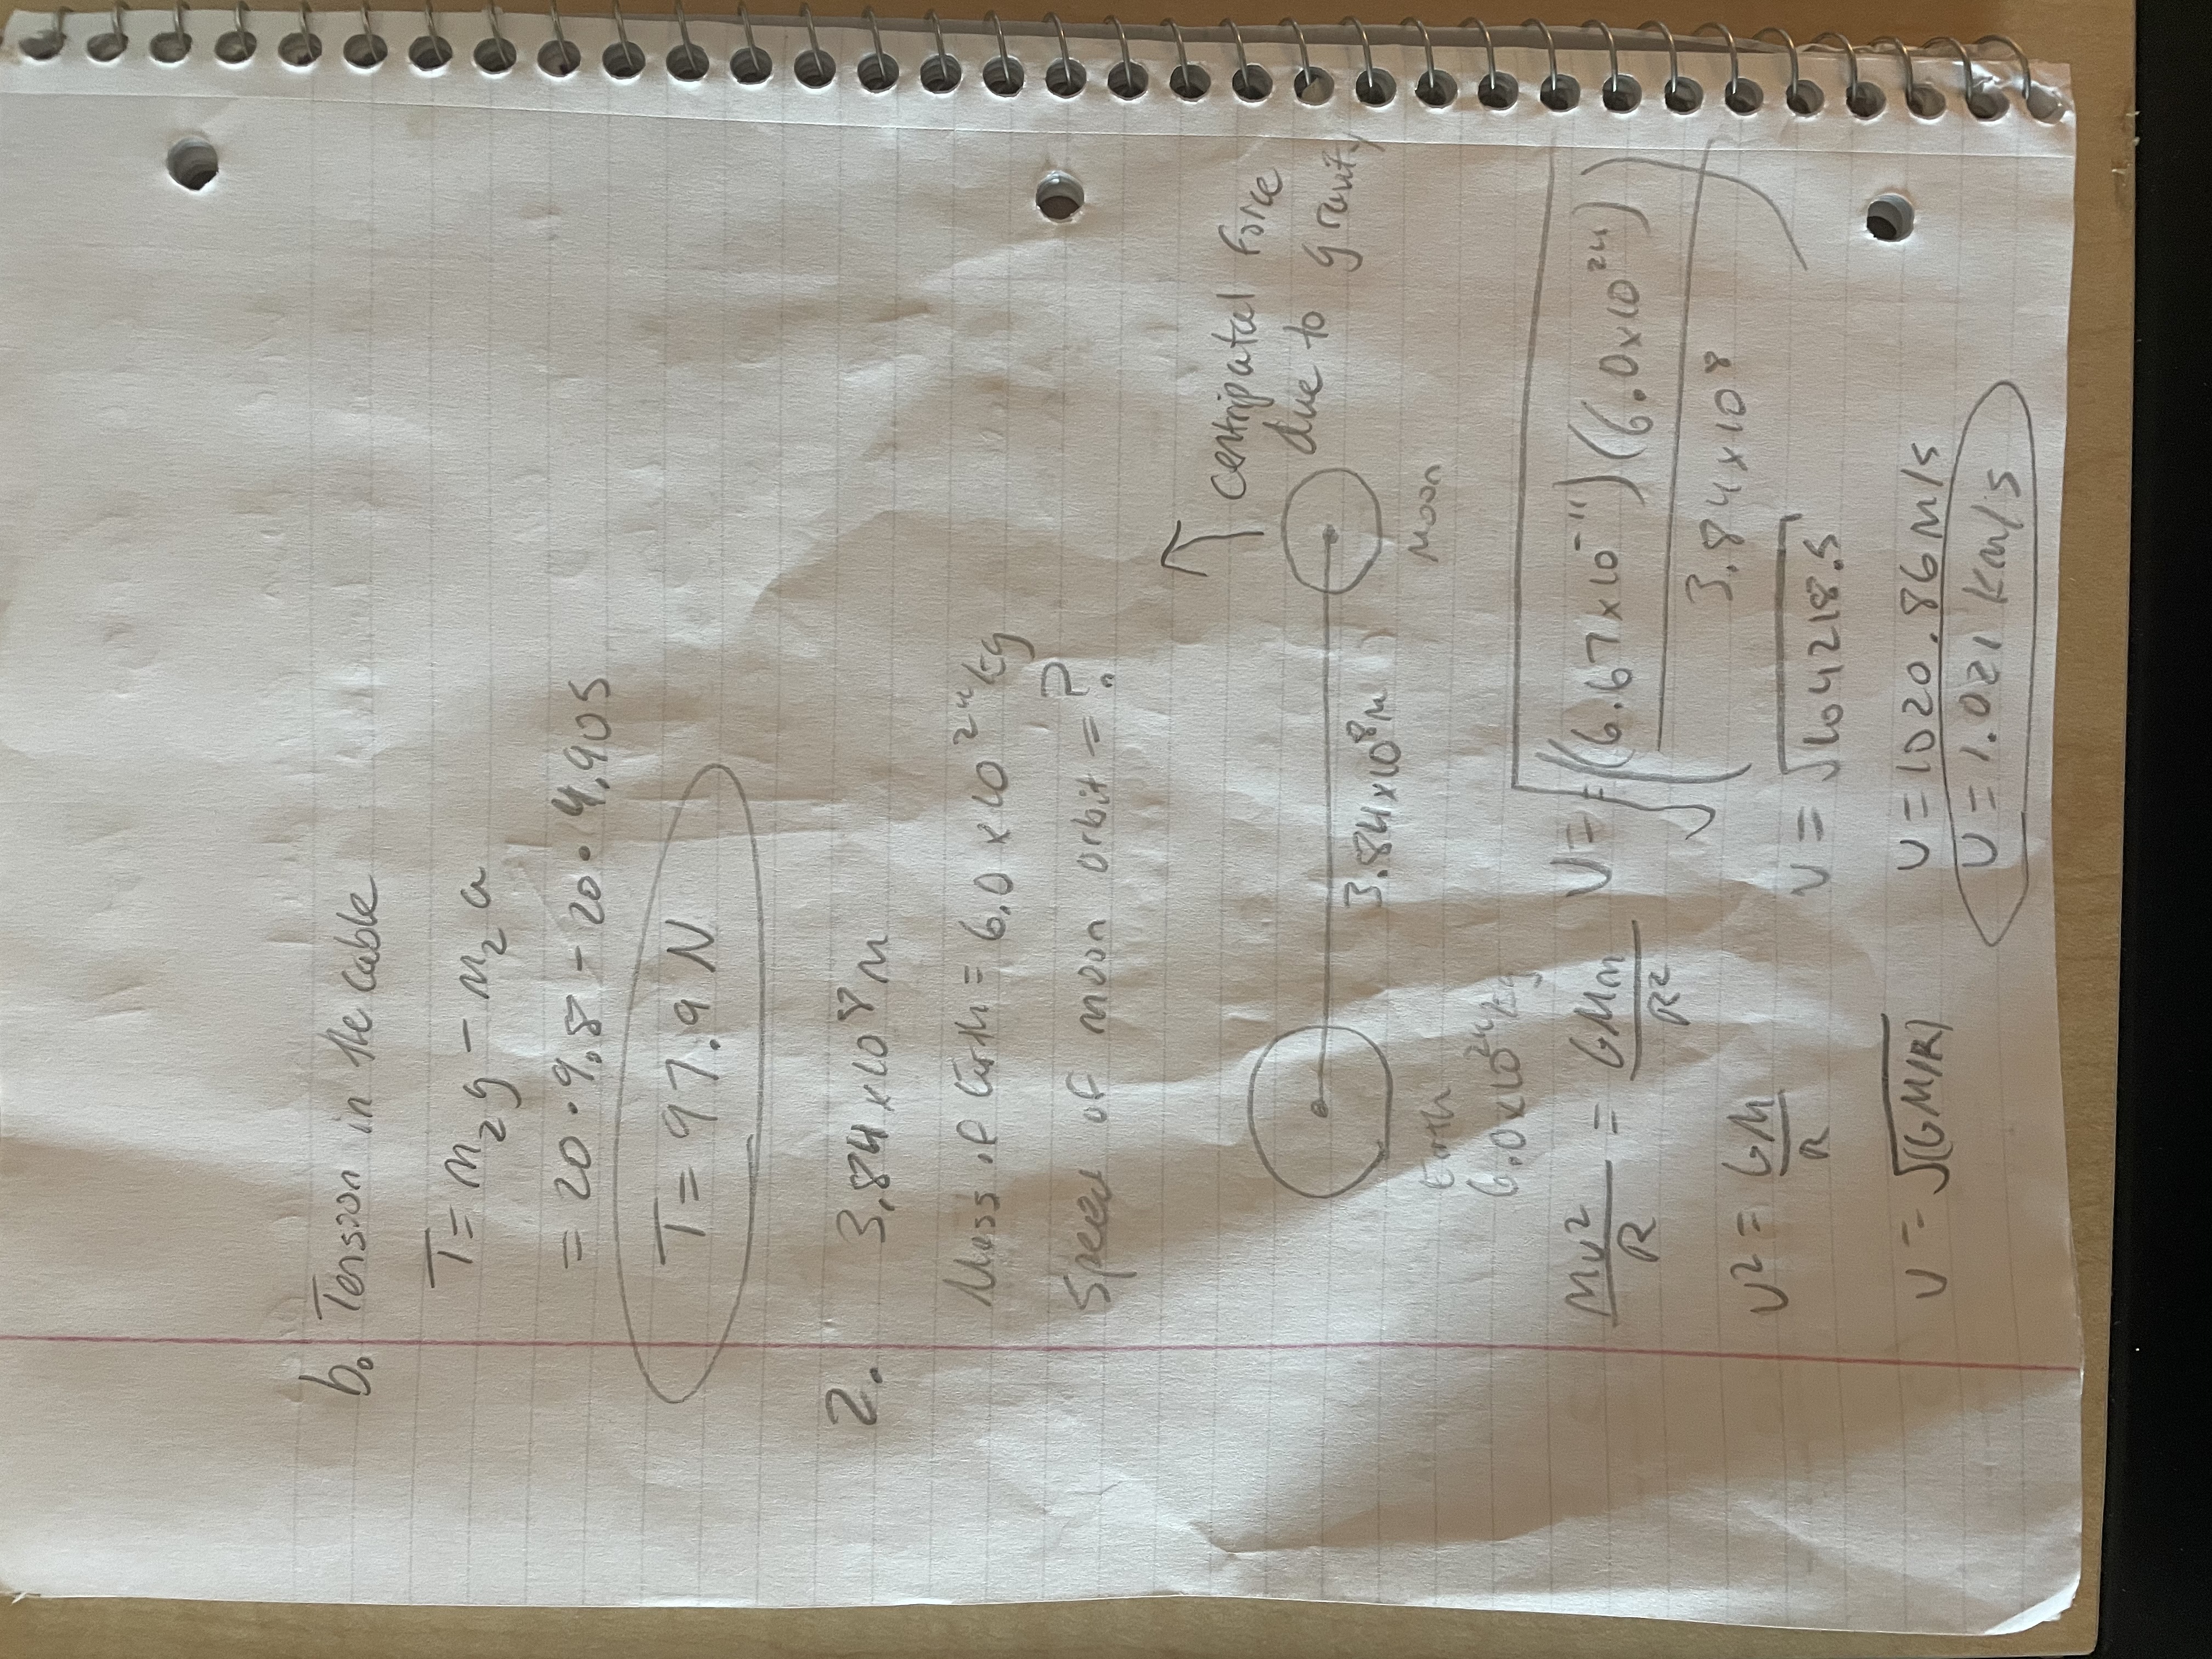 b. Tension in the cable
T = m₂g - m₂a
= 20 · 9.8 - 20 · 4.905
T = 97.9 N
2. 3.84 x 10⁸ m
Mass of Earth = 6.0 x 10²⁴ kg
Speed of moon orbit = ?
centripatal force
due to gravity
3.84x10⁸ m
Earth
Moon
6.0x10²⁴ kg
Mv²/R = GMm/R²
v² = GM/R
v = √(GM/R)
v = √((6.67x10⁻¹¹)(6.0x10²⁴)/3.84x10⁸)
v = √104218.5
v = 1020.86 m/s
v = 1.021 km/s